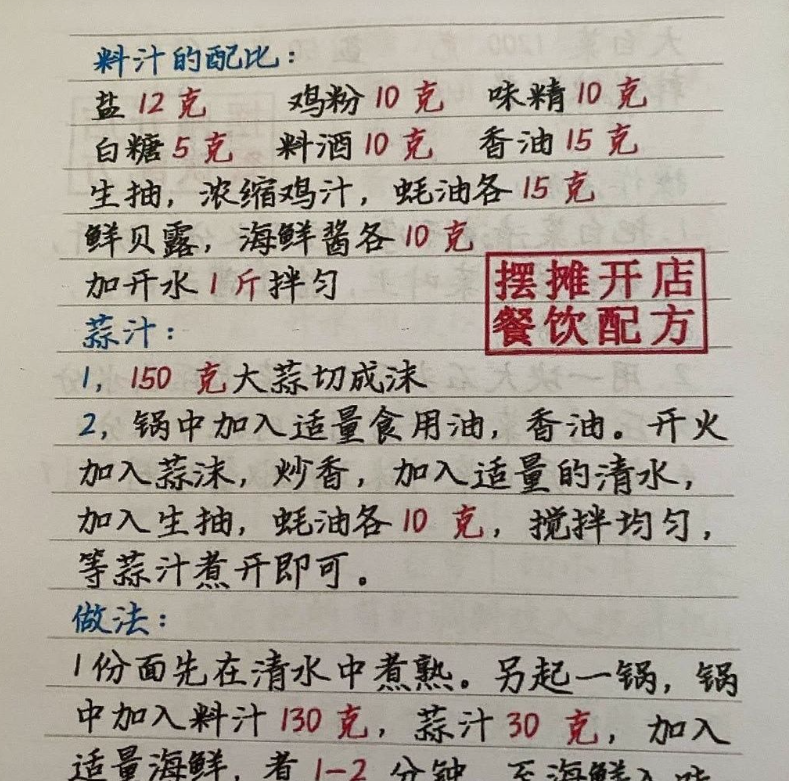 料汁的配比：
盐12克 鸡粉10克 味精10克
白糖5克 料酒10克 香油15克
生抽，浓缩鸡汁，蚝油各15克
鲜贝露，海鲜酱各10克
加开水1斤拌匀
摆摊开店
餐饮配方
蒜汁：
1，150克大蒜切成沫
2，锅中加入适量食用油，香油。开火
加入蒜沫，炒香，加入适量的清水，
加入生抽，蚝油各10克，搅拌均匀，
等蒜汁煮开即可。
做法：
1份面先在清水中煮熟。另起一锅，锅
中加入料汁130克，蒜汁30克，加入
适量海鲜，煮1-2分钟，至海鲜入味